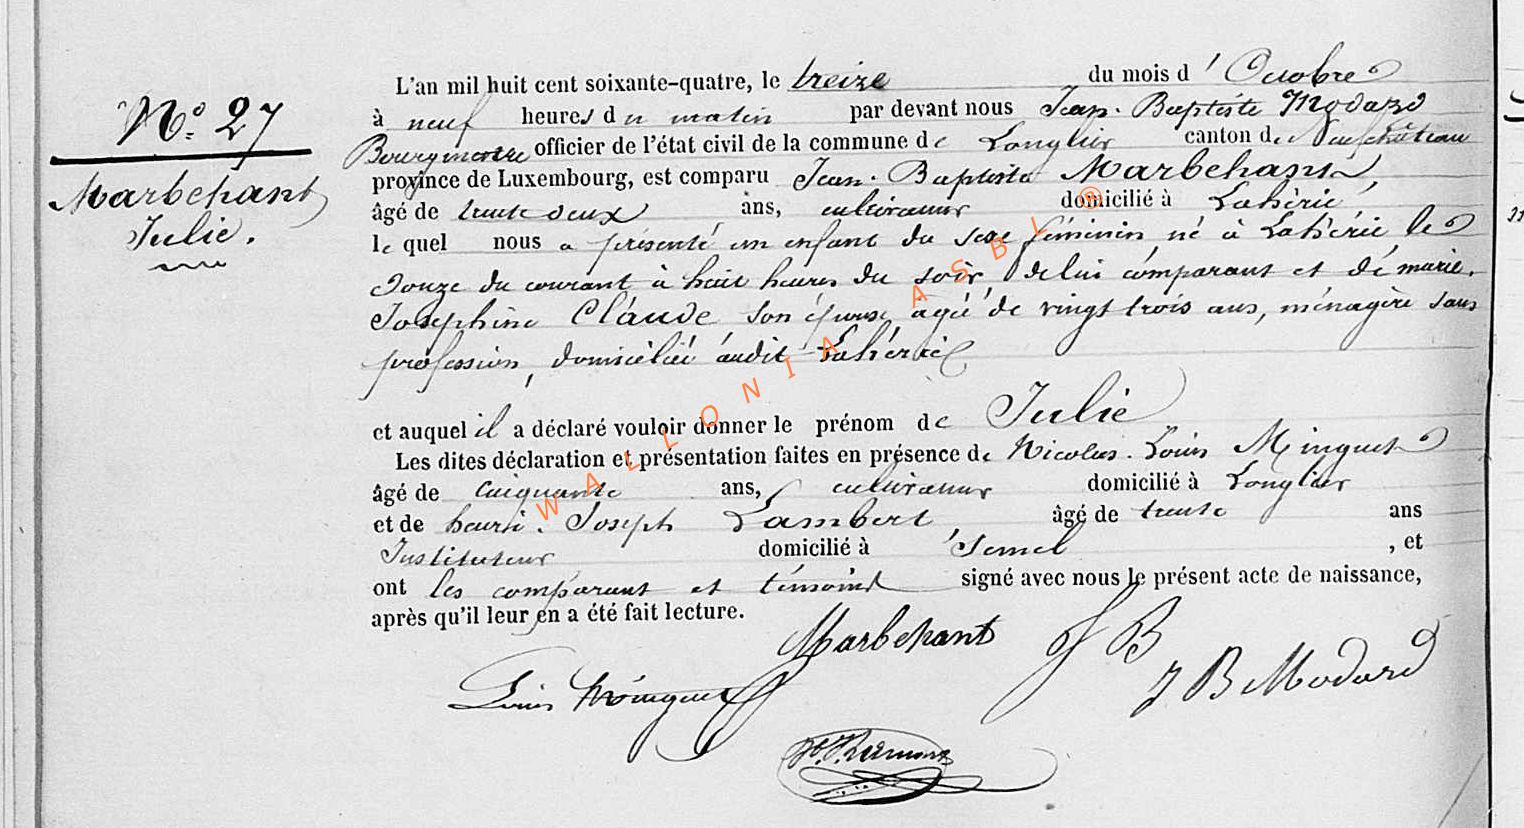 N° 27
Marbehant
Julie.
L'an mil huit cent soixante-quatre, le treize du mois d'Octobre
à neuf heures du matin par devant nous Jean-Baptiste Modard
Bourgmestre officier de l'état civil de la commune de Longlier canton de Neufchâteau
province de Luxembourg, est comparu Jean-Baptiste Marbehant
âgé de trente deux ans, cultivateur domicilié à Lahérie
lequel nous a présenté un enfant du sexe féminin, né à Lahérie, le
douze du courant à huit heures du soir, de lui comparant et de marie-
Joséphine Claude son épouse, agée de vingt trois ans, ménagère sans
profession, domiciliée audit Lahérie
et auquel il a déclaré vouloir donner le prénom de Julie
Les dites déclaration et présentation faites en présence de Nicolas-Louis Minguet
âgé de cinquante ans, cultivateur domicilié à Longlier
et de henri-Joseph Lambert, âgé de trente ans
Instituteur domicilié à Semel, et
ont les comparant et témoins signé avec nous le présent acte de naissance,
après qu'il leur en a été fait lecture.
Marbehant J B
Louis Minguet J B Modard
WALLONIA ASBL ®